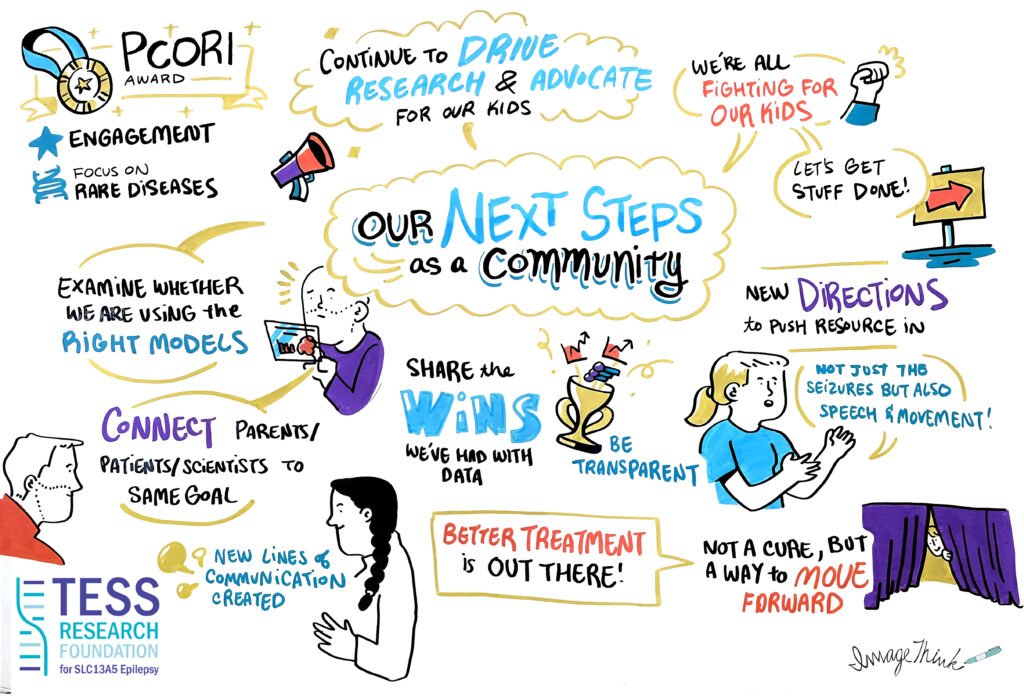 PCORI
AWARD
ENGAGEMENT
FOCUS ON
RARE DISEASES
CONTINUE TO DRIVE
RESEARCH & ADVOCATE
FOR OUR KIDS
WE'RE ALL
FIGHTING FOR
OUR KIDS
LET'S GET
STUFF DONE!
OUR NEXT STEPS
as a COMMUNITY
EXAMINE WHETHER
WE ARE USING the
RIGHT MODELS
NEW DIRECTIONS
to PUSH RESOURCE IN
NOT JUST THE
SEIZURES BUT ALSO
SPEECH & MOVEMENT!
SHARE the
WINS
WE'VE HAD WITH
DATA
BE
TRANSPARENT
CONNECT PARENTS/
PATIENTS/SCIENTISTS TO
SAME GOAL
NEW LINES of
COMMUNICATION
CREATED
BETTER TREATMENT
is OUT THERE!
NOT A CURE, BUT
A WAY to MOVE
FORWARD
TESS
RESEARCH
FOUNDATION
for SLC13A5 Epilepsy
ImageThink